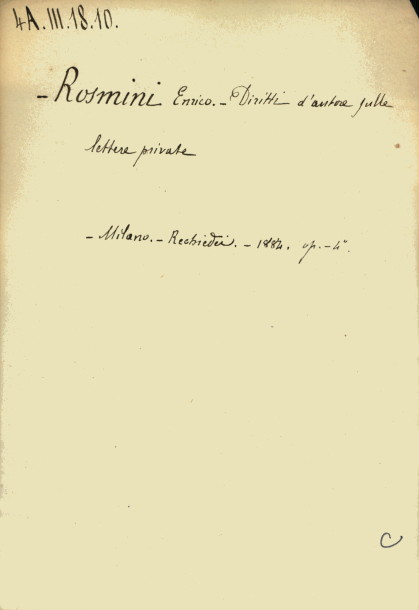 4A.III.18.10.
- Rosmini Enrico. - Diritti d'autore sulle
lettere private
- Milano. - Rechiedei. - 1884. op. - 4°.
C